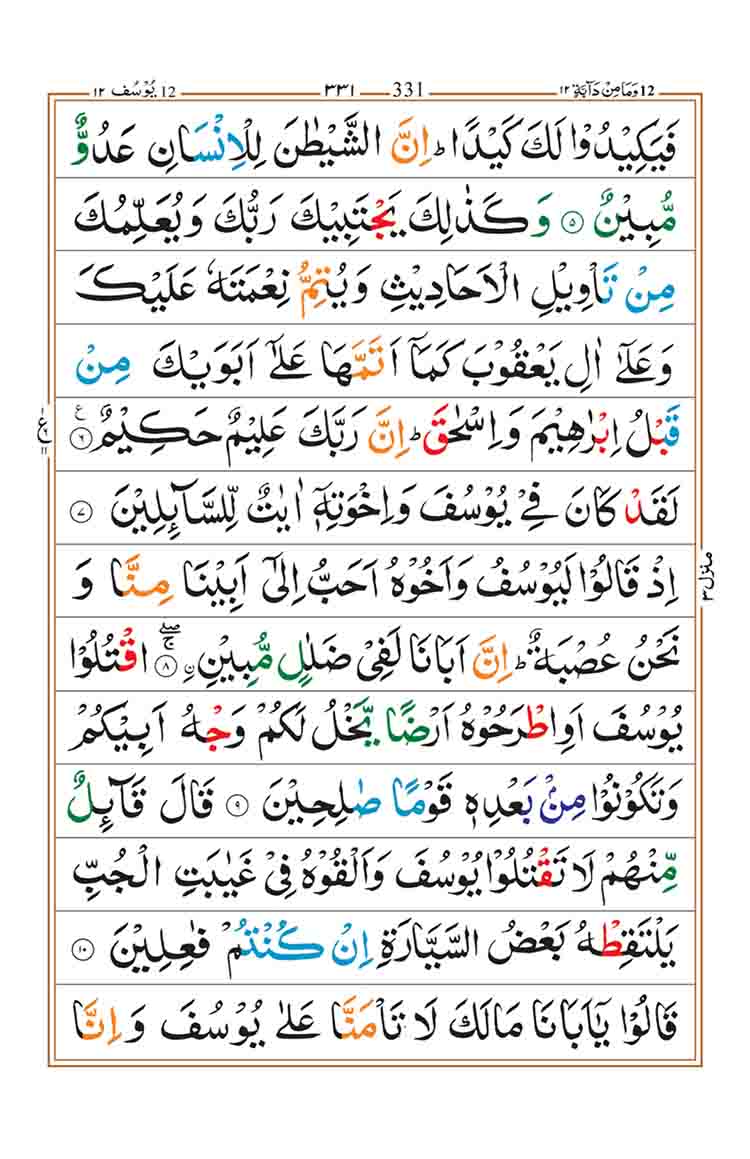 12 وَمَا مِنْ دَآبَّةٍ ١٢ 331 ٣٣١ 12 يُوْسُف ١٢
فَيَكِيْدُوْا لَكَ كَيْدًا ؕ اِنَّ الشَّيْطٰنَ لِلْاِنْسَانِ عَدُوٌّ
مُّبِيْنٌ ۝۵ وَكَذٰلِكَ يَجْتَبِيْكَ رَبُّكَ وَيُعَلِّمُكَ
مِنْ تَاْوِيْلِ الْاَحَادِيْثِ وَيُتِمُّ نِعْمَتَهٗ عَلَيْكَ
وَعَلٰٓى اٰلِ يَعْقُوْبَ كَمَاۤ اَتَمَّهَا عَلٰٓى اَبَوَيْكَ مِنْ
قَبْلُ اِبْرٰهِيْمَ وَاِسْحٰقَ ؕ اِنَّ رَبَّكَ عَلِيْمٌ حَكِيْمٌ ۝۶ ع
لَقَدْ كَانَ فِيْ يُوْسُفَ وَاِخْوَتِهٖۤ اٰيٰتٌ لِّلسَّآئِلِيْنَ ۝۷
اِذْ قَالُوْا لَيُوْسُفُ وَاَخُوْهُ اَحَبُّ اِلٰٓى اَبِيْنَا مِنَّا وَ
نَحْنُ عُصْبَةٌ ؕ اِنَّ اَبَانَا لَفِيْ ضَلٰلٍ مُّبِيْنِ ۝۸ ۣاقْتُلُوْا
يُوْسُفَ اَوِ اطْرَحُوْهُ اَرْضًا يَّخْلُ لَكُمْ وَجْهُ اَبِيْكُمْ
وَتَكُوْنُوْا مِنْۢ بَعْدِهٖ قَوْمًا صٰلِحِيْنَ ۝۹ قَالَ قَآئِلٌ
مِّنْهُمْ لَا تَقْتُلُوْا يُوْسُفَ وَاَلْقُوْهُ فِيْ غَيٰبَتِ الْجُبِّ
يَلْتَقِطْهُ بَعْضُ السَّيَّارَةِ اِنْ كُنْتُمْ فٰعِلِيْنَ ۝۱۰
قَالُوْا يٰۤاَبَانَا مَالَكَ لَا تَاْمَنَّا عَلٰى يُوْسُفَ وَاِنَّا
منزل ٣